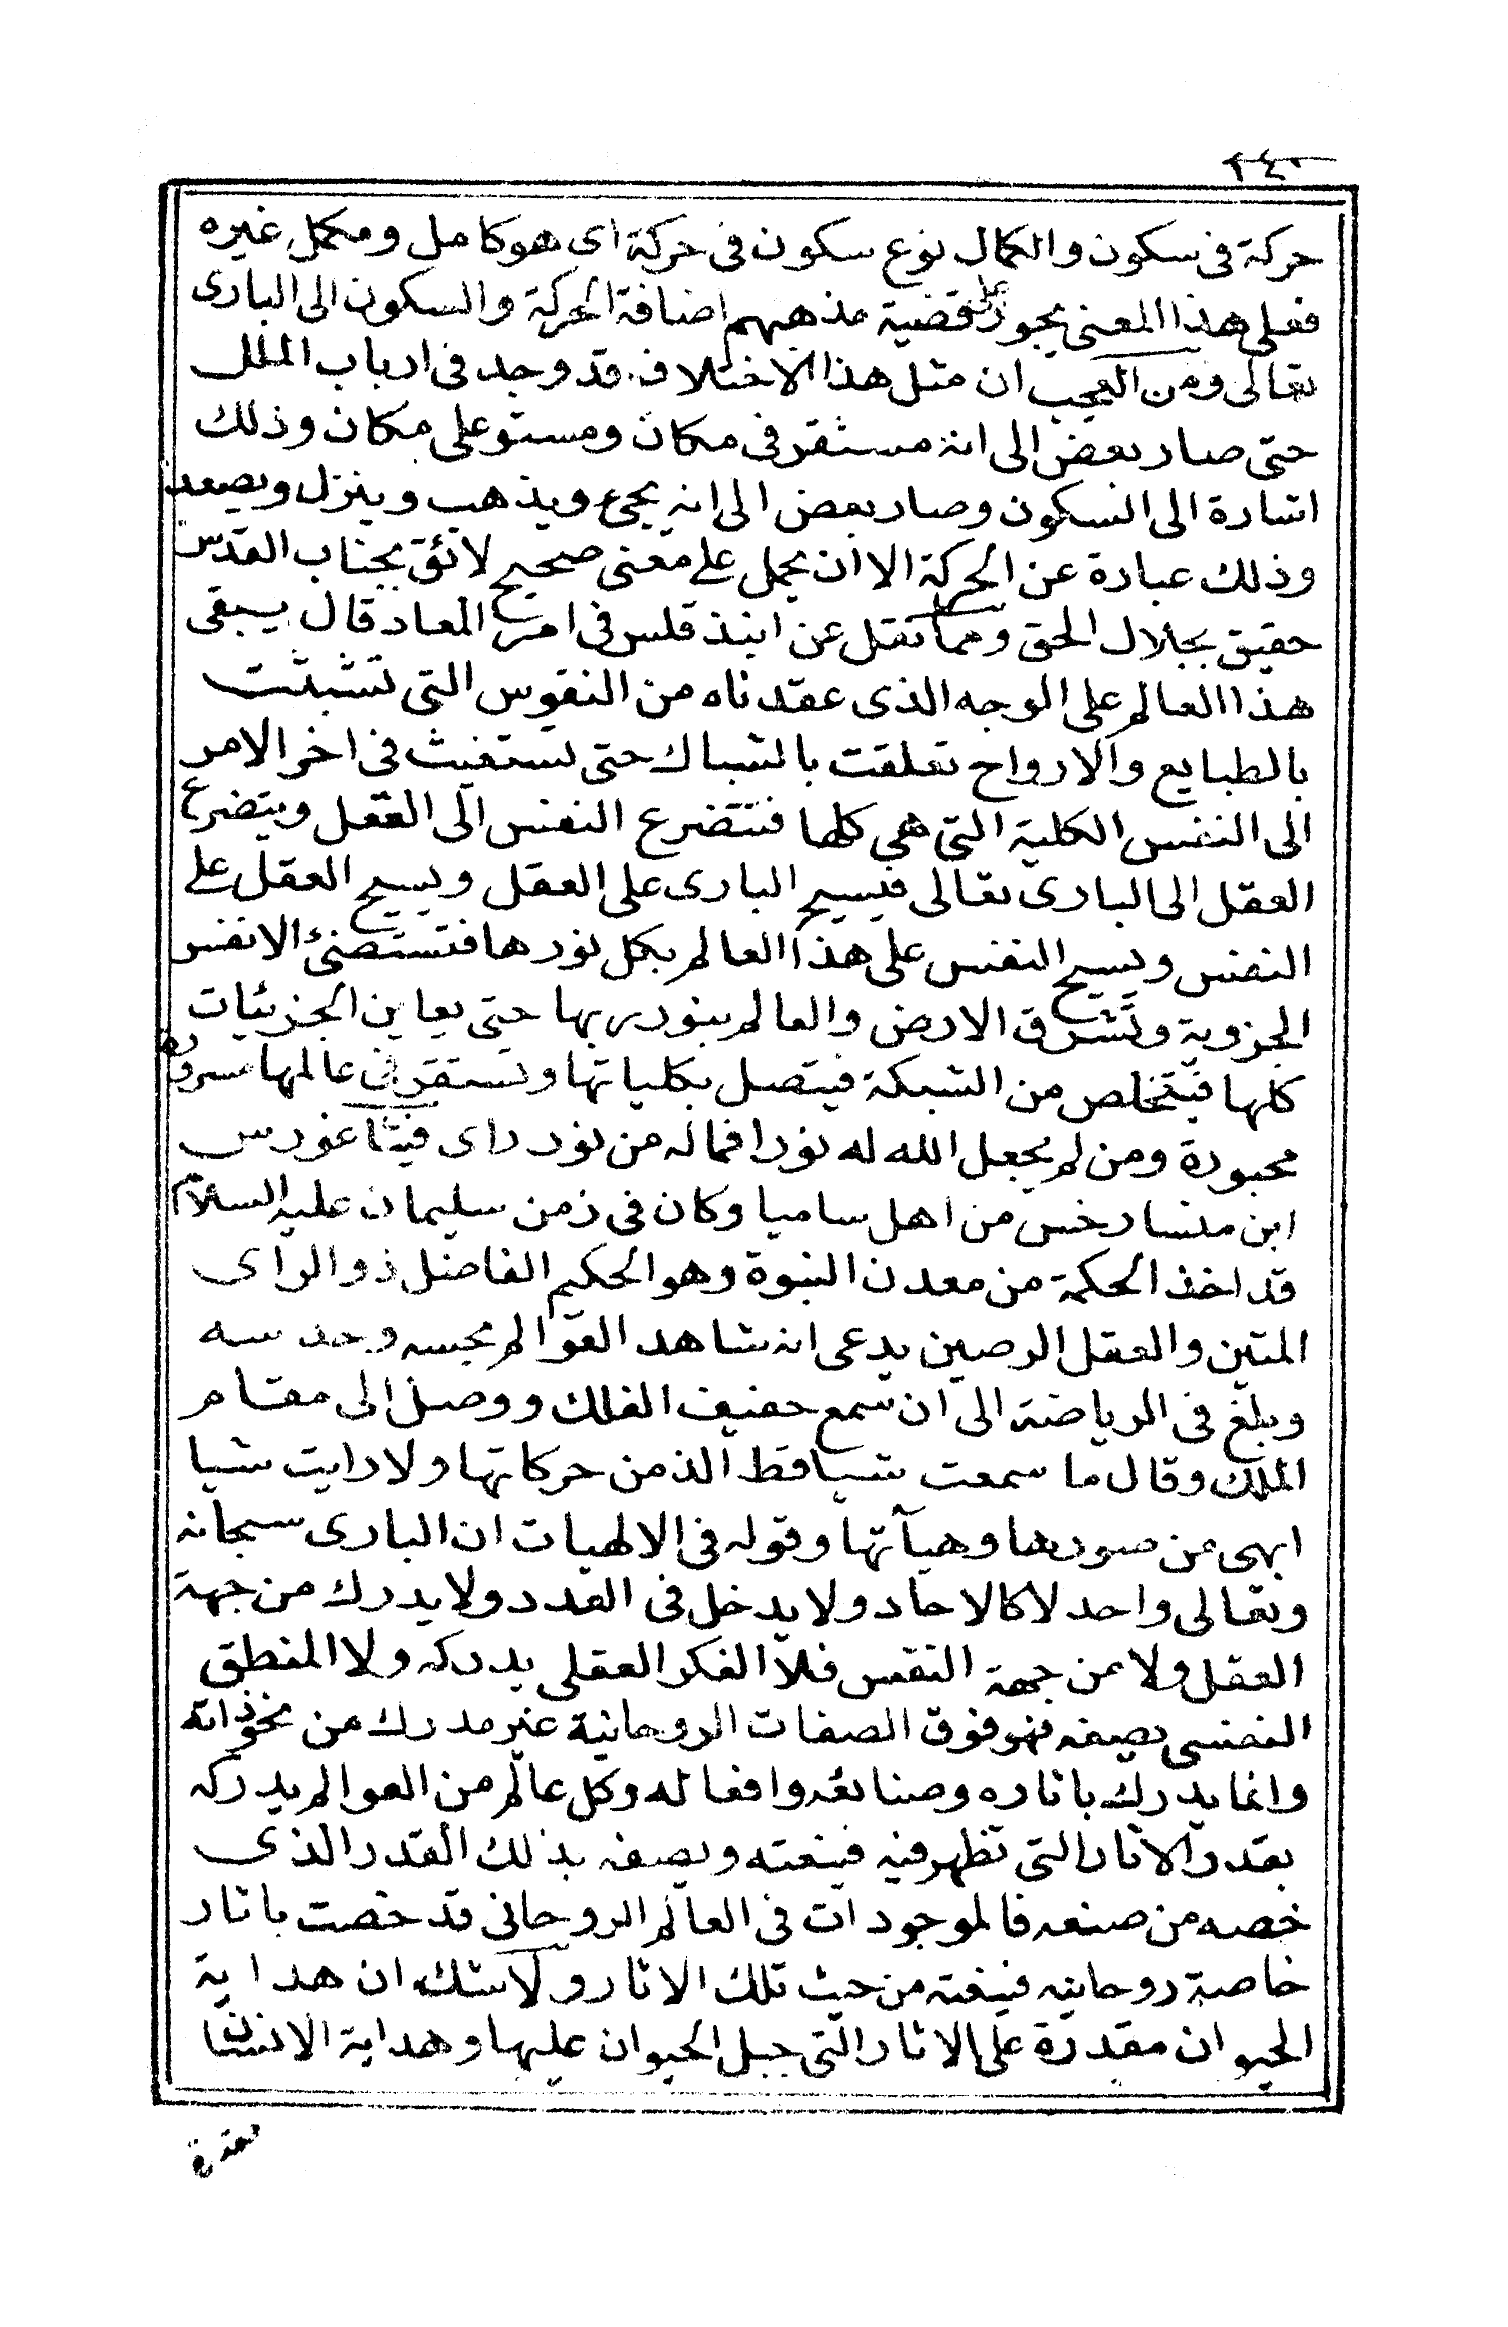 ٢٤٠
حركة فى سكون والكمال نوع سكون فى حركة اى هو كامل ومكمل غيره
فعلى هذا المعنى يجوز على قضية مذهبهم اضافة الحركة والسكون الى البارى
تعالى ومن العجب ان مثل هذا الاختلاف قد وجد فى ارباب الملل
حتى صار بعض الى انه مستقر فى مكان ومستو على مكان وذلك
اشارة الى السكون وصار بعض الى انه يجئ ويذهب وينزل ويصعد
وذلك عبارة عن الحركة الا ان يحمل على معنى صحيح لائق بجناب القدس
حقيق بجلال الحق ومما نقل عن ابنذ قلس فى امر المعاد قال يبقى
هذا العالم على الوجه الذى عقد ناه من النفوس التى تشبثت
بالطبايع والارواح تعلقت بالشباك حتى تستغيث فى اخر الامر
الى النفس الكلية التى هى كلها فتتضرع النفس الى العقل ويتضرع
العقل الى البارى تعالى فيسيح البارى على العقل ويسيح العقل على
النفس ويسيح النفس على هذا العالم بكل نورها فتستضئ الانفس
الجزوية وتشرق الارض والعالم بنور ربها حتى يعاين الجزئيات
كلها فيتخلص من الشبكة فيتصل بكلياتها وتستقر فى عالمها مسرورة
محبورة ومن لم يجعل الله له نورا فماله من نور راى فيثاغورس
ابن منسارخس من اهل ساميا وكان فى زمن سليمان عليه السلام
قد اخذ الحكمة من معدن النبوة وهو الحكيم الفاضل ذو الراى
المتين والعقل الرصين يدعى انه شاهد العوالم بحسه وحدسه
وبلغ فى الرياضة الى ان سمع حفيف الفلك ووصل الى مقام
الملك وقال ما سمعت شيا قط الذ من حركاتها ولا رايت شيا
ابهى من صورها وهيآتها وقوله فى الالهيات ان البارى سبحانه
وتعالى واحد لا كالاحاد ولا يدخل فى العدد ولا يدرك من جهة
العقل ولا من جهة النفس فلا الفكر العقلى يدركه ولا المنطق
النفسى يصفه فهو فوق الصفات الروحانية غير مدرك من نحو ذاته
وانما يدرك باثاره وصنايعه وافعاله وكل عالم من العوالم يدركه
بقدر الاثار التى تظهر فيه فينعته ويصفه بذلك القدر الذى
خصه من صنعه فالموجودات فى العالم الروحانى قد خصت باثار
خاصة روحانيه فينعته من حيث تلك الاثار ولا شك ان هداية
الحيوان مقدرة على الاثار التى جبل الحيوان عليها وهداية الانسان